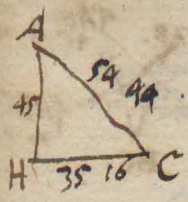 A
54 44
45
H 35 16 C